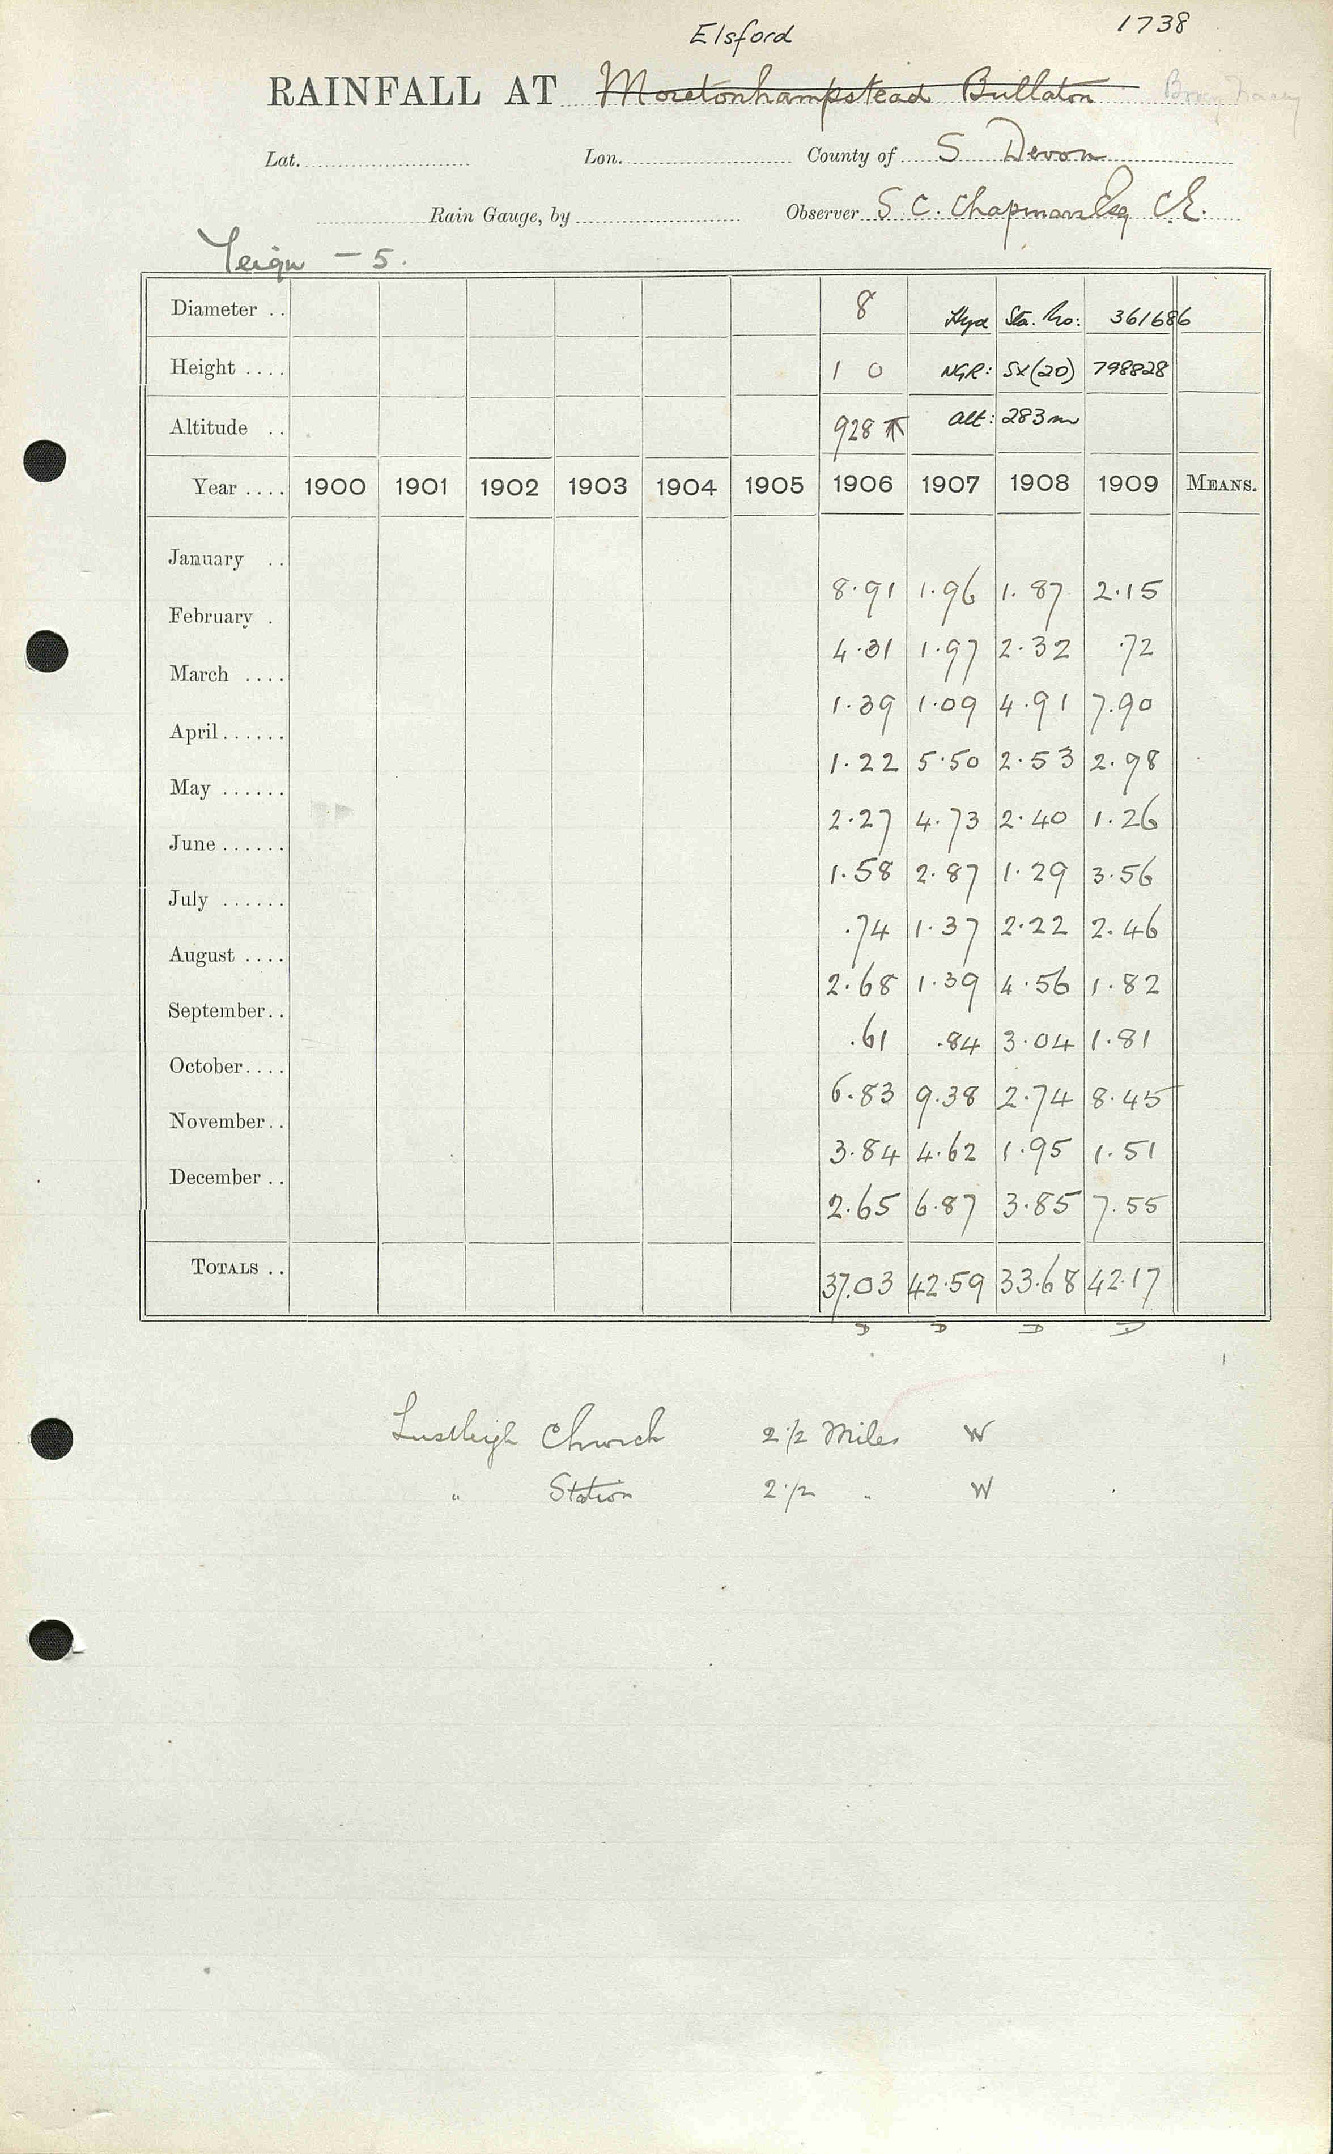 Elsford 1738
RAINFALL AT Moretonhampstead Bullaton Bovey Tracey
Lat. Lon. County of S Devon
Rain Gauge, by Observer S. C. Chapman Esq C.E.
Teign - 5.
Diameter .. 8 Hyd Sta. No: 361686
Height .... 1 0 NGR: SX(20) 798828
Altitude .. 928 Alt: 283m
Year .... 1900 1901 1902 1903 1904 1905 1906 1907 1908 1909 MEANS.
January .. 8.91 1.96 1.87 2.15
February . 4.31 1.97 2.32 .72
March .... 1.39 1.09 4.91 7.90
April...... 1.22 5.50 2.53 2.98
May ...... 2.27 4.73 2.40 1.26
June ...... 1.58 2.87 1.29 3.56
July ...... .74 1.37 2.22 2.46
August .... 2.68 1.39 4.56 1.82
September.. .61 .84 3.04 1.81
October.... 6.83 9.38 2.74 8.45
November.. 3.84 4.62 1.95 1.51
December .. 2.65 6.87 3.85 7.55
TOTALS .. 37.03 42.59 33.68 42.17
D D D D
Lustleigh Church 2½ Miles W
" Station 2½ " W